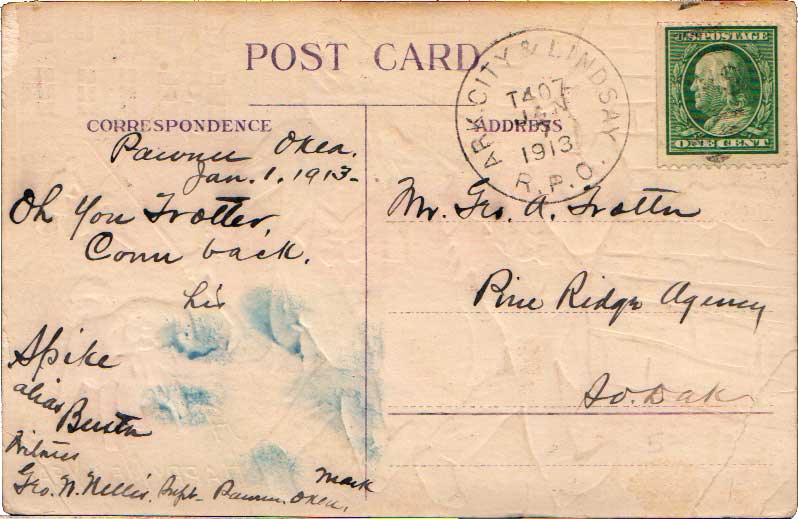 POST CARD
CORRESPONDENCE
Pawnee Okla.
Jan. 1. 1913-
Oh You Trotter,
Come back.
his
Spike
alias
Buster
Witness
mark
Geo. W. Nellis, Supt- Pawnee, Okla.
ADDRESS
Mr. Geo. A. Trotter
Pine Ridge Agency
So. Dak
ARK. CITY & LINDSAY
T407
JAN
1913
R.P.O.
U.S. POSTAGE
ONE CENT